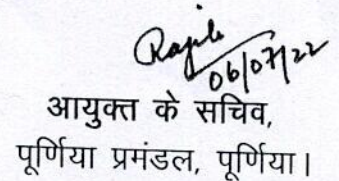 Rajib
06/07/22
आयुक्त के सचिव,
पूर्णिया प्रमंडल, पूर्णिया।